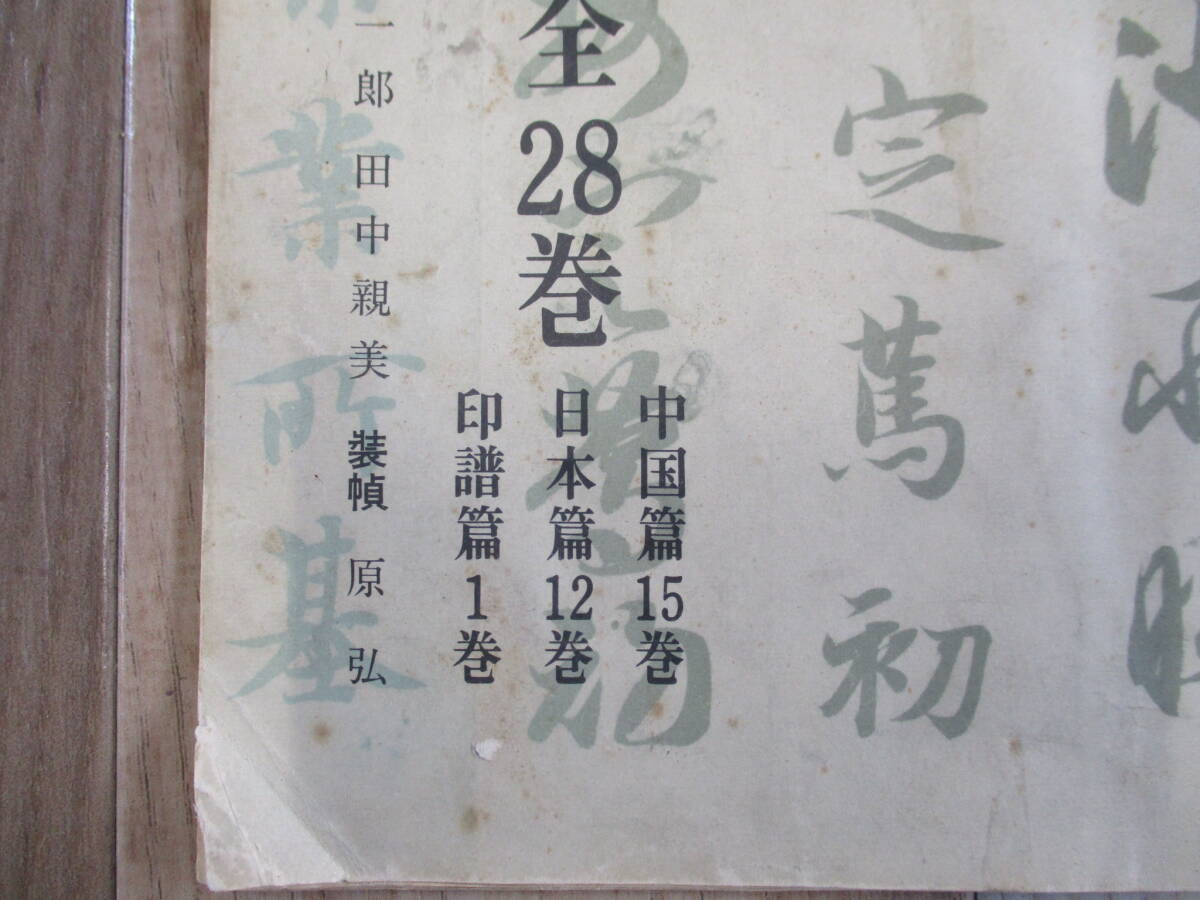 定篤初
全28巻
中国篇15巻
日本篇12巻
印譜篇1巻
一郎 田中親美 装幀 原弘
業所基